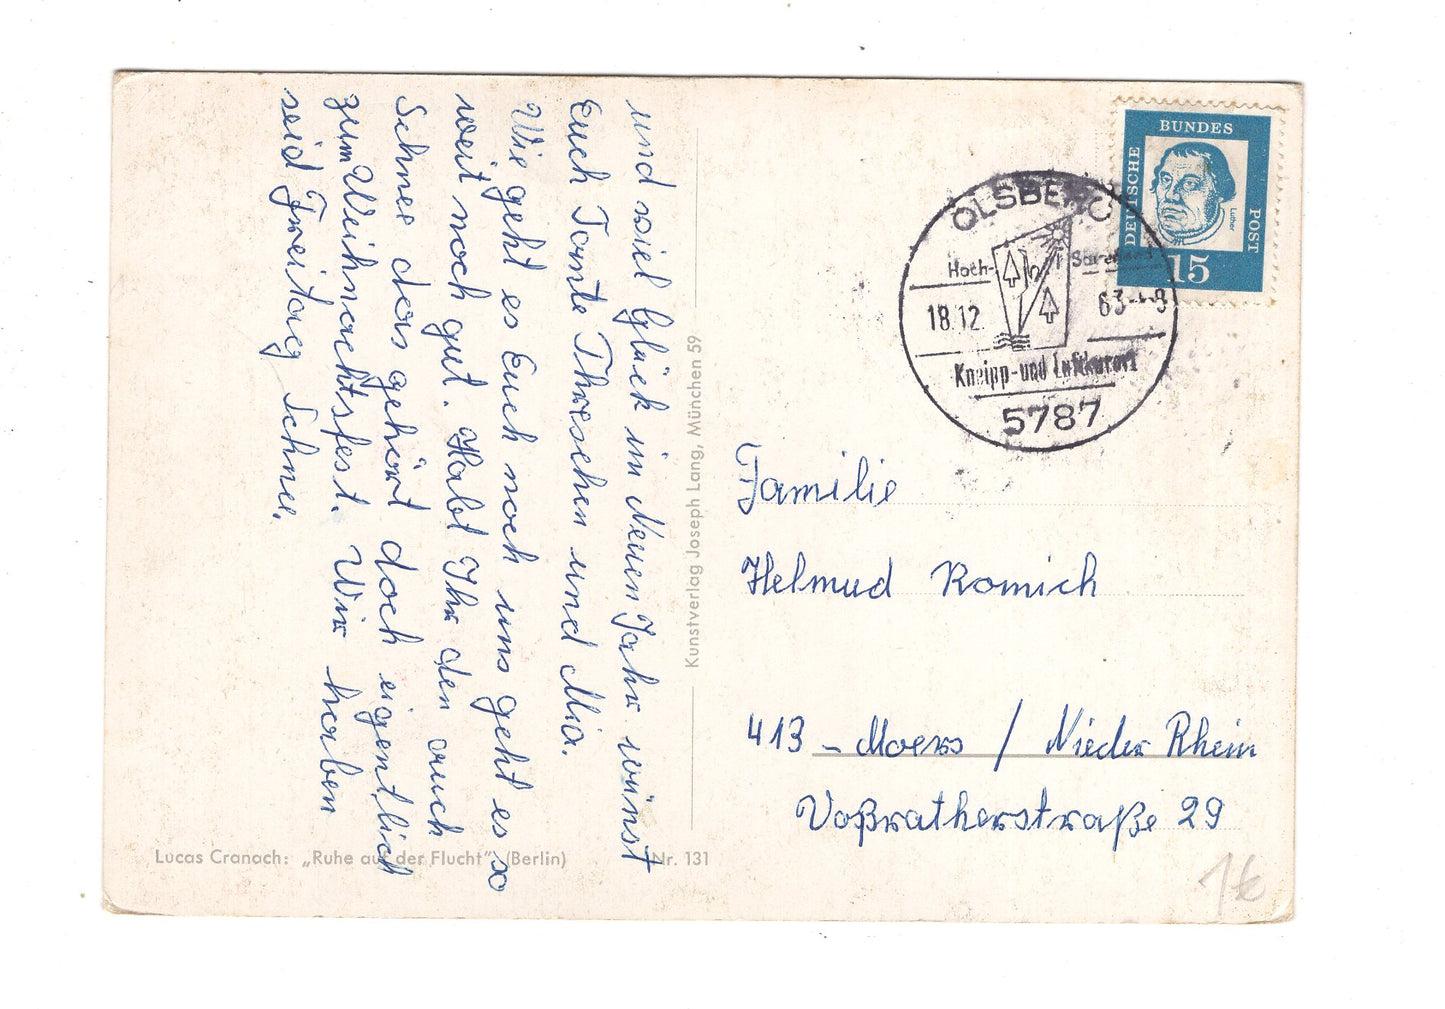 und viel Glück im Neuen Jahr wünst
Euch Tante Threschen und Mia.
Wie geht es Euch noch uns geht es so
weit noch gut. Habt Ihr den auch
Schnee das gehört doch eigentlich
zum Weihnachtsfest. Wir haben
seid Freitag Schnee.
Kunstverlag Joseph Lang, München 59
Lucas Cranach: „Ruhe auf der Flucht" (Berlin)
Nr. 131
DEUTSCHE BUNDES POST
Luther
15
OLSBERG
Hoch- Sauerland
18.12. 63
Kneipp- und Luftkurort
5787
Familie
Helmud Romich
413 - Moers / Nieder Rhein
Voßratherstraße 29
1€